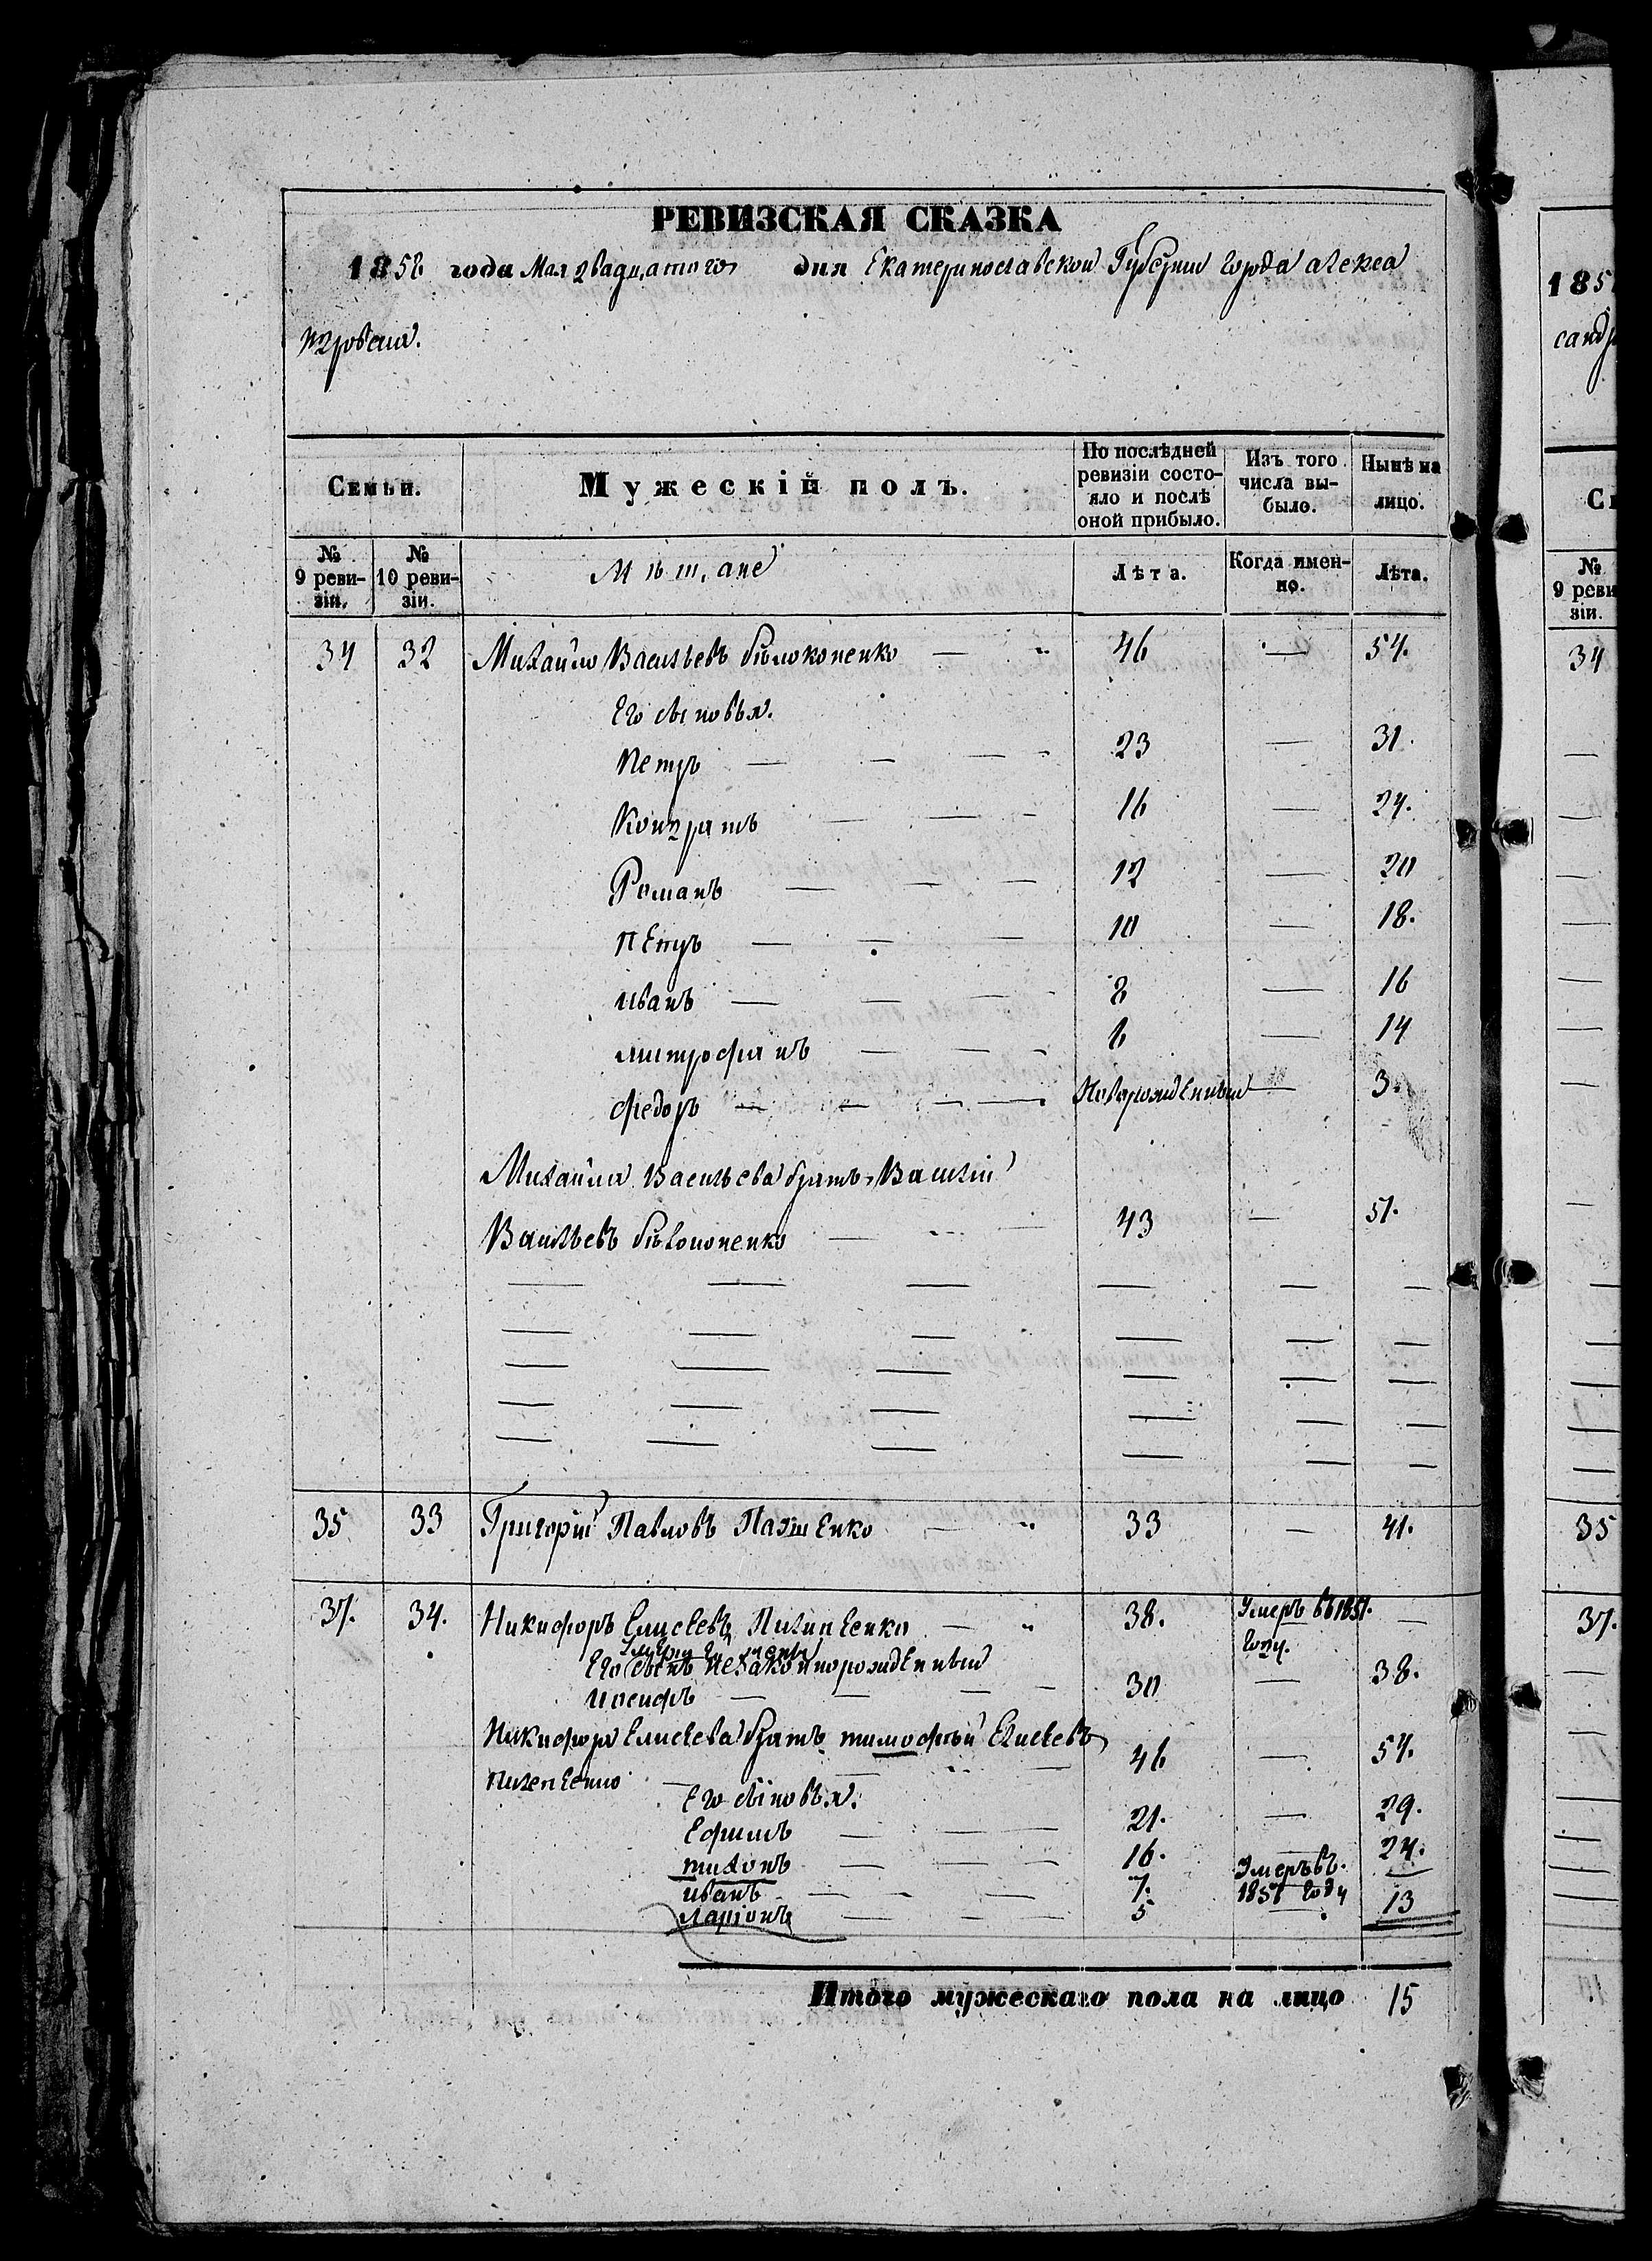 РЕВИЗСКАЯ СКАЗКА
1858 года Мая двадцатого дня Екатеринославской Губернии города Алекса
ндровска.
Семьи. Мужескій полъ. По послѣдней ревизіи состояло и послѣ оной прибыло. Изъ того числа выбыло. Нынѣ на лицо.
№ 9 ревизіи. № 10 ревизіи. Мѣщане Лѣта. Когда именно. Лѣта.
34 32 Михайло Васильевъ Бѣлоконенко — 46 — 54.
Его сыновья.
Петръ — — — 23 — 31.
Кондратъ — — — 16 — 24.
Романъ — — — 12 — 20
Петръ — — — 10 — 18.
Иванъ — — — 8 — 16
Митрофанъ — — — 6 — 14
Федоръ — — — — Новорожденный — 3.
Михайла Васильева братъ, Василій
Васильевъ Бѣлоконенко — 43 — 51.
35 33 Григорій Павловъ — 33 — 41.
37. 34. Никифоръ Елисеевъ — 38. Умеръ въ 1851. —
году.
Его сынъ незаконнорожденный
Иосифъ — — — — 30 — 38.
Никифора Елисеева братъ тимофѣй Елисеевъ
46 — 54.
Его сыновья.
Ефимъ — — — 21. — 29.
тихонъ — — — 16. — 24.
Иванъ — — — 7. Умеръ въ. —
1851 году
Ларіонъ — — — 5 — 13
Итого мужескаго пола на лицо 15
1851
санд
С
№
9 реви
зіи.
34
35
37.